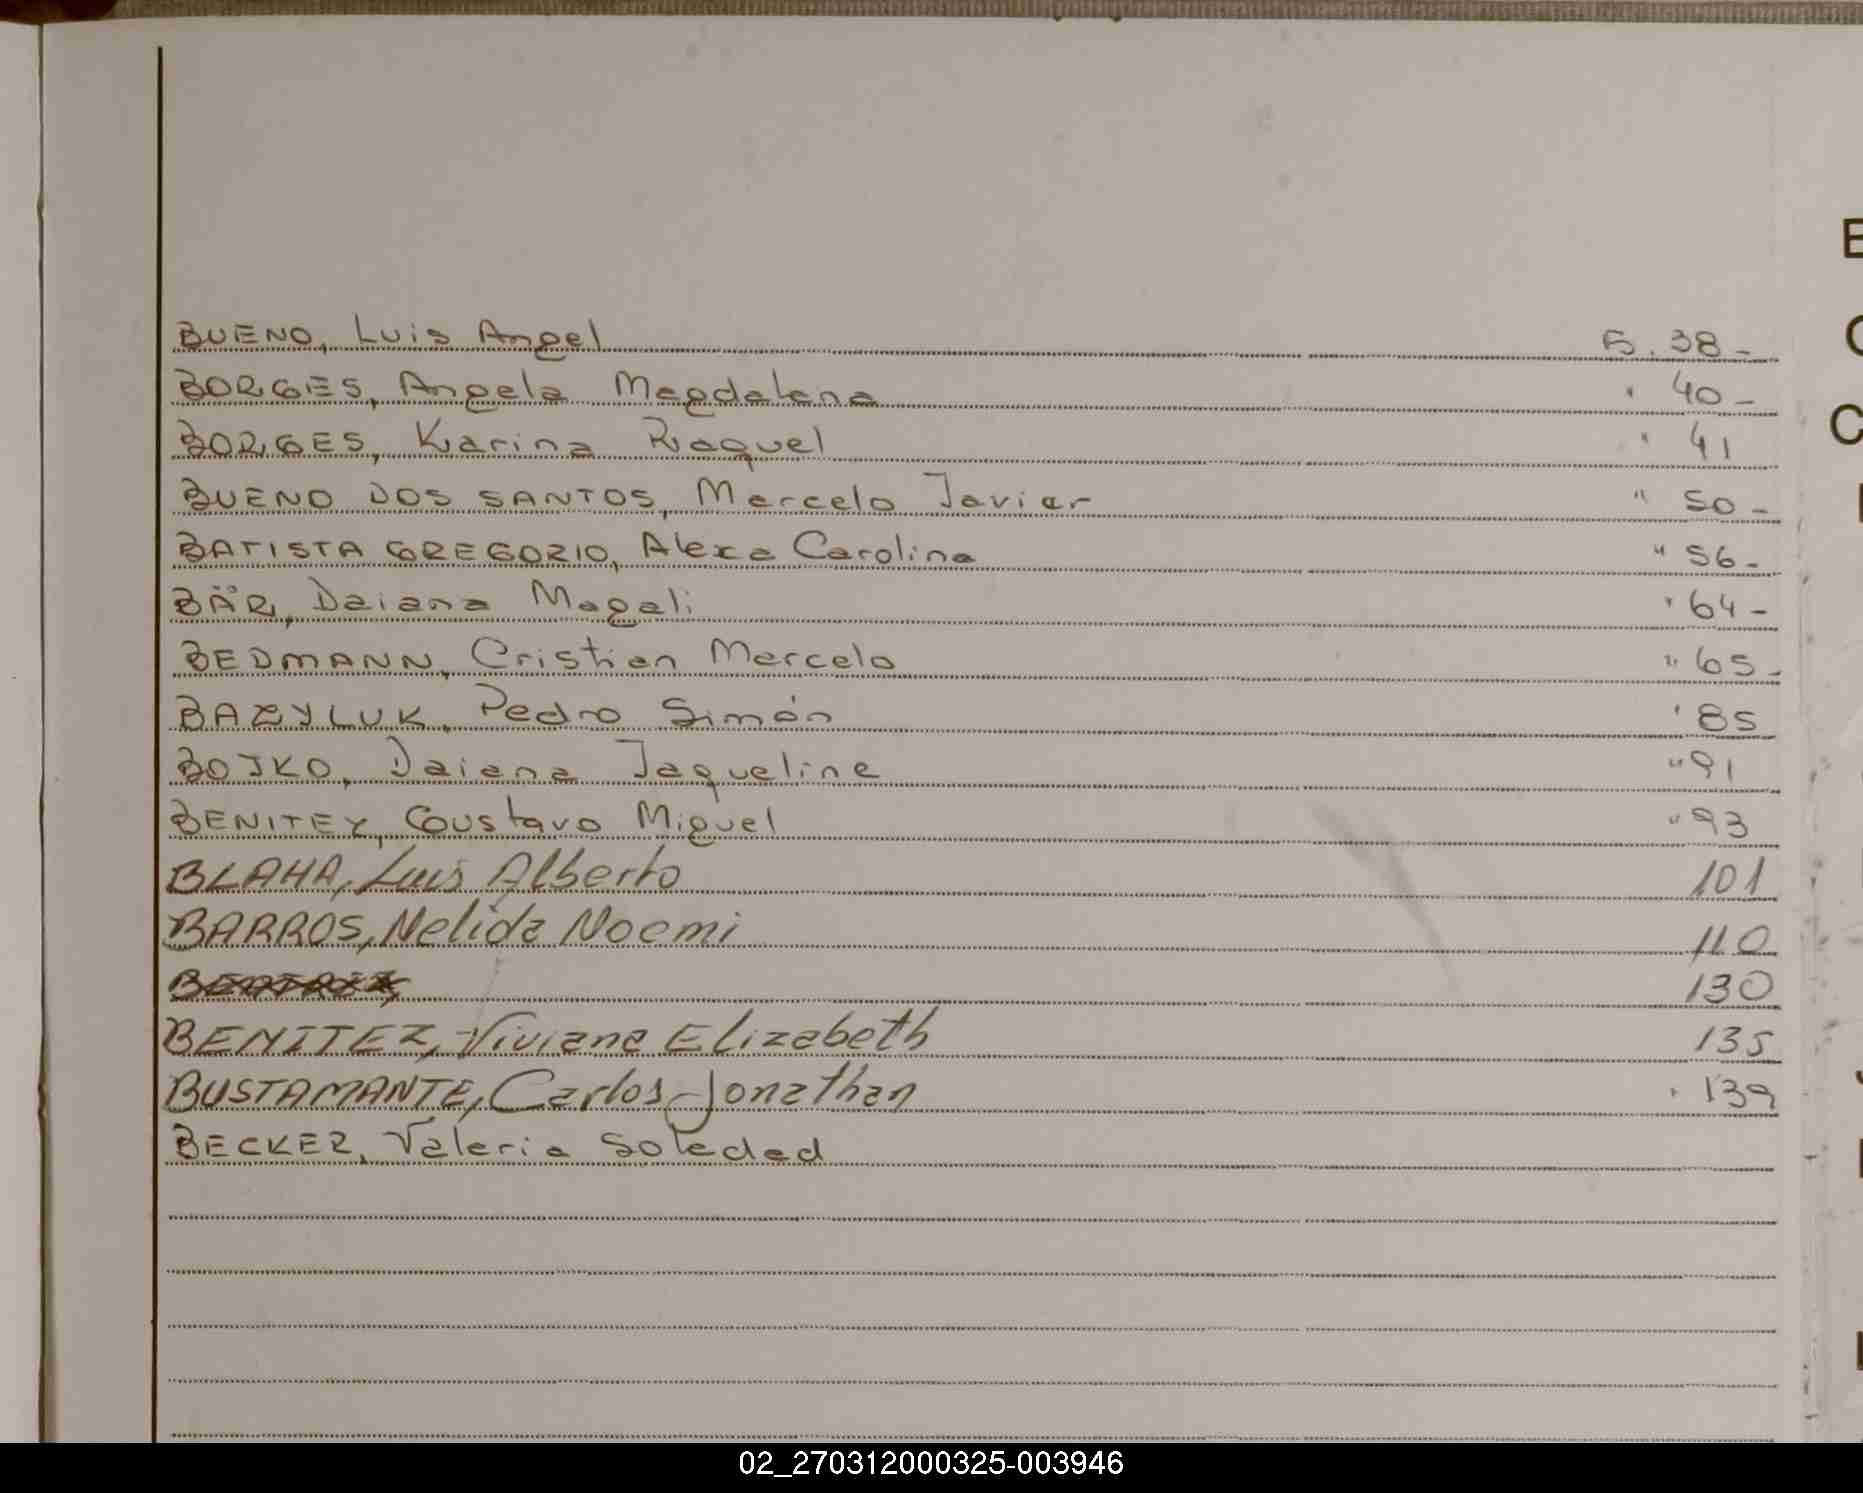 BUENO, Luis Angel 5. 38-
BORGES, Angela Magdalena " 40-
BORGES, Karina Raquel " 41
BUENO DOS SANTOS, Marcelo Javier " 50-
BATISTA GREGORIO, Alexa Carolina " 56-
BÄR, Daiana Magali " 64-
BEDMANN, Cristian Marcelo " 65-
BAZYLUK, Pedro Simón " 85
BOJKO, Daiana Jaqueline " 91
BENITEZ, Gustavo Miguel " 93
BLAHA, Luis Alberto 101
BARROS, Nelida Noemi 110
130
BENITEZ, Viviana Elizabeth 135
BUSTAMANTE, Carlos Jonathan 139
BECKER, Valeria Soledad
02_270312000325-003946